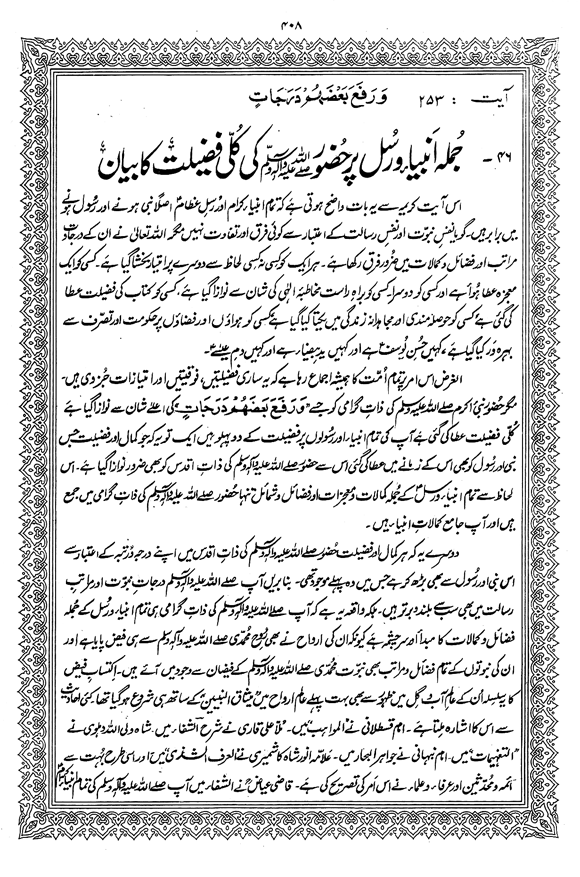 ۴۰۸
آیت : ۲۵۳ وَرَفَعَ بَعْضَهُمْ دَرَجَاتٍ
۴۶ - جُملہ اَنبیاء و رُسل پر حضُور صلی اللہ علیہ وآلہ وسلم کی کُلّی فضیلت کا بیان
اس آیتِ کریمہ سے یہ بات واضح ہوتی ہے کہ تمام انبیاء کرام اور رسلِ عظام اصلاً نبی ہونے اور رسُول ہونے
میں برابر ہیں۔ گویا نفسِ نبوّت اور نفسِ رسالت کے اعتبار سے کوئی فرق اور تفاوت نہیں مگر اللہ تعالیٰ نے ان کے درجات
مراتب اور فضائل و کمالات میں ضرور فرق رکھا ہے۔ ہر ایک کو کسی نہ کسی لحاظ سے دوسرے پر امتیاز بخشا گیا ہے۔ کسی کو ایک
معجزہ عطا ہوا ہے اور کسی کو دوسرا۔ کسی کو براہِ راست مخاطبۂ الٰہی کی شان سے نوازا گیا ہے، کسی کو کتاب کی فضیلت عطا
کی گئی ہے کسی کو حوصلہ مندی اور مجاہدانہ زندگی میں یکتا کیا گیا ہے کسی کو ہواؤں اور فضاؤں پر حکومت اور تصرف سے
بہرہ ور کیا گیا ہے، کہیں حُسنِ یُوسف ہے اور کہیں یدِ بیضا ہے اور کہیں دمِ عیسیٰ ہے۔
الغرض اس امر پر تمام اُمّت کا ہمیشہ اجماع رہا ہے کہ یہ ساری فضیلتیں، فوقیتیں اور امتیازات جزوی ہیں۔
مگر حضُور نبی اکرم صلے اللہ علیہ وسلم کی ذاتِ گرامی کو جسے "وَرَفَعَ بَعْضَهُمْ دَرَجَاتٍ" کی اعلےٰ شان سے نوازا گیا ہے
کُلّی فضیلت عطا کی گئی ہے آپ کی تمام انبیاء اور رسولوں پر فضیلت کے دو پہلو ہیں ایک تو یہ کہ جو کمال اور فضیلت جس
نبی اور رسُول کو بھی اس کے زمانے میں عطا کی گئی اس سے حضور صلے اللہ علیہ وآلہ وسلم کی ذاتِ اقدس کو بھی ضرور نوازا گیا ہے۔ اس
لحاظ سے تمام انبیاء و رسل کے جُملہ کمالات و معجزات اور فضائل و شمائل تنہا حضُور صلے اللہ علیہ وآلہ وسلم کی ذاتِ گرامی میں جمع
ہیں اور آپ جامع کمالاتِ انبیاء ہیں۔
دوسرے یہ کہ ہر کمال اور فضیلت حضُور صلے اللہ علیہ وآلہ وسلم کی ذاتِ اقدس میں اپنے درجہ و رُتبہ کے اعتبار سے
اس نبی اور رسُول سے بھی بڑھ کر ہے جس میں وہ پہلے موجود تھی۔ بنا بریں آپ صلے اللہ علیہ وآلہ وسلم درجاتِ نبوّت اور مراتبِ
رسالت میں بھی سب سے بلند و برتر ہیں۔ بلکہ واقعہ یہ ہے کہ آپ صلے اللہ علیہ وآلہ وسلم کی ذات گرامی ہی تمام انبیاء و رسُل کے جُملہ
فضائل و کمالات کا مبدأ اور سرچشمہ ہے کیونکہ ان کی ارواح نے بھی رُوحِ محمّدی صلے اللہ علیہ وآلہ وسلم سے ہی فیض پایا ہے اور
ان کی نبوتوں کے تمام فضائل و مراتب بھی نبوّتِ محمّدی صلے اللہ علیہ وآلہ وسلم کے فیضان سے وجود میں آئے ہیں۔ اکتسابِ فیض
کا یہ سلسلہ اُن کے عالمِ آب و گِل میں ظہُور سے بھی بہت پہلے عالمِ ارواح میں میثاق النبیین کے ساتھ ہی شروع ہو گیا تھا۔ کئی احادیث
سے اس کا اشارہ ملتا ہے۔ امام قسطلانی نے "المواہب" میں۔ ملّا علی قاری نے شرح الشفاء میں۔ شاہ ولی اللہ دہلوی نے
"التفہیمات" میں۔ امام نبہانی نے جواہر البحار میں۔ علّامہ انور شاہ کاشمیری نے العرف الشذی میں اور اسی طرح بہت سے
ائمّہ و محدّثین اور عرفاء و علماء نے اس امر کی تصریح کی ہے۔ قاضی عیاض نے الشفاء میں آپ صلے اللہ علیہ وآلہ وسلم کی تمام انبیاء